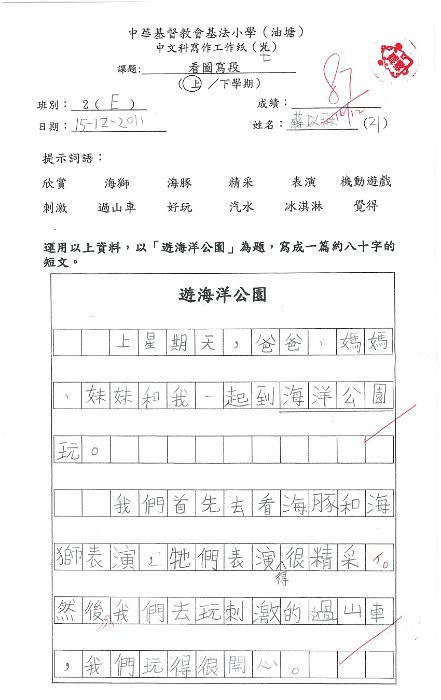 中華基督教會基法小學（油塘）
中文科寫作工作紙（光）
七
課題：看圖寫段
（上／下學期）
87
班別：2（E） 成績：
16/12
日期：15-12-2011 姓名：蘇以 （21）
提示詞語：
欣賞 海獅 海豚 精采 表演 機動遊戲
刺激 過山車 好玩 汽水 冰淇淋 覺得
運用以上資料，以「遊海洋公園」為題，寫成一篇約八十字的
短文。
遊海洋公園
上星期天，爸爸、媽媽
、妹妹和我一起到海洋公園
玩。
我們首先去看海豚和海
獅表演，牠們表演得很精采。
然後我們去玩刺激的過山車
，我們玩得很開心。